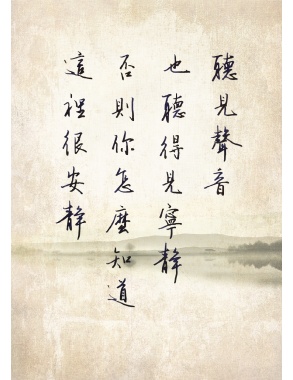 聽見聲音
也聽得見寧靜
否則你怎麼知道
這裡很安靜